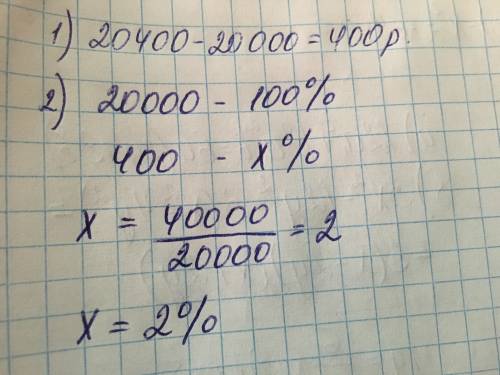 1) 20400 - 20000 = 400р.
2) 20000 - 100%
400 - x%
x = 40000/20000 = 2
x = 2%